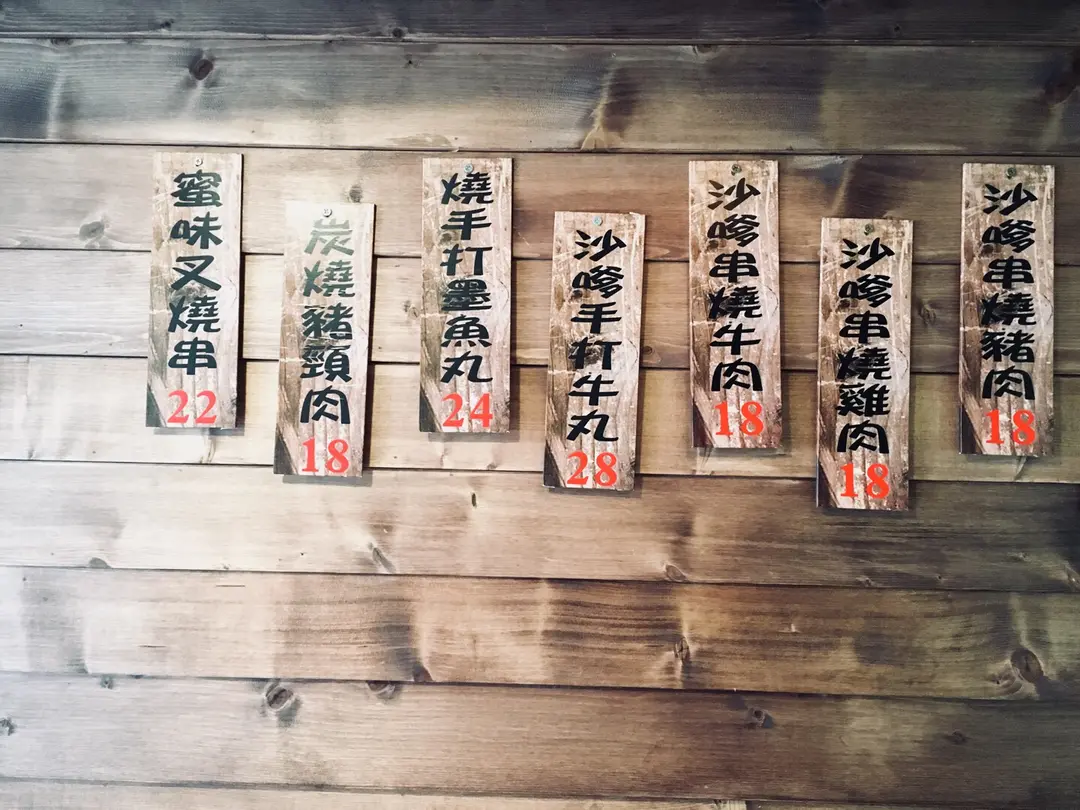 蜜味叉燒串
22
炭燒豬頸肉
18
燒手打墨魚丸
24
沙嗲手打牛丸
28
沙嗲串燒牛肉
18
沙嗲串燒雞肉
18
沙嗲串燒豬肉
18